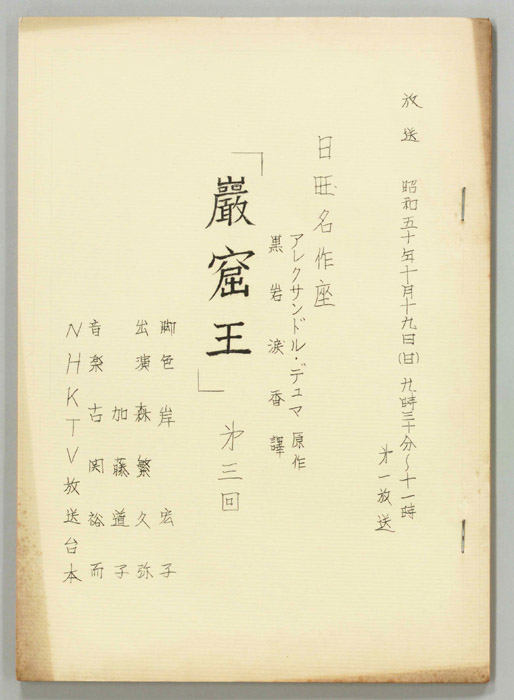 放送 昭和五十年十月十九日(日)九時三十分～十一時
第一放送
日旺名作座
アレクサンドル・デュマ 原作
黒岩涙香 譯
「巖窟王」
第三回
脚色 岸 宏子
出演 森繁久弥
加藤道子
音楽 古関裕而
NHKTV放送台本